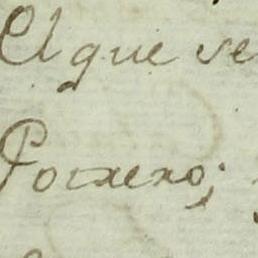 El que se
Porxexo;